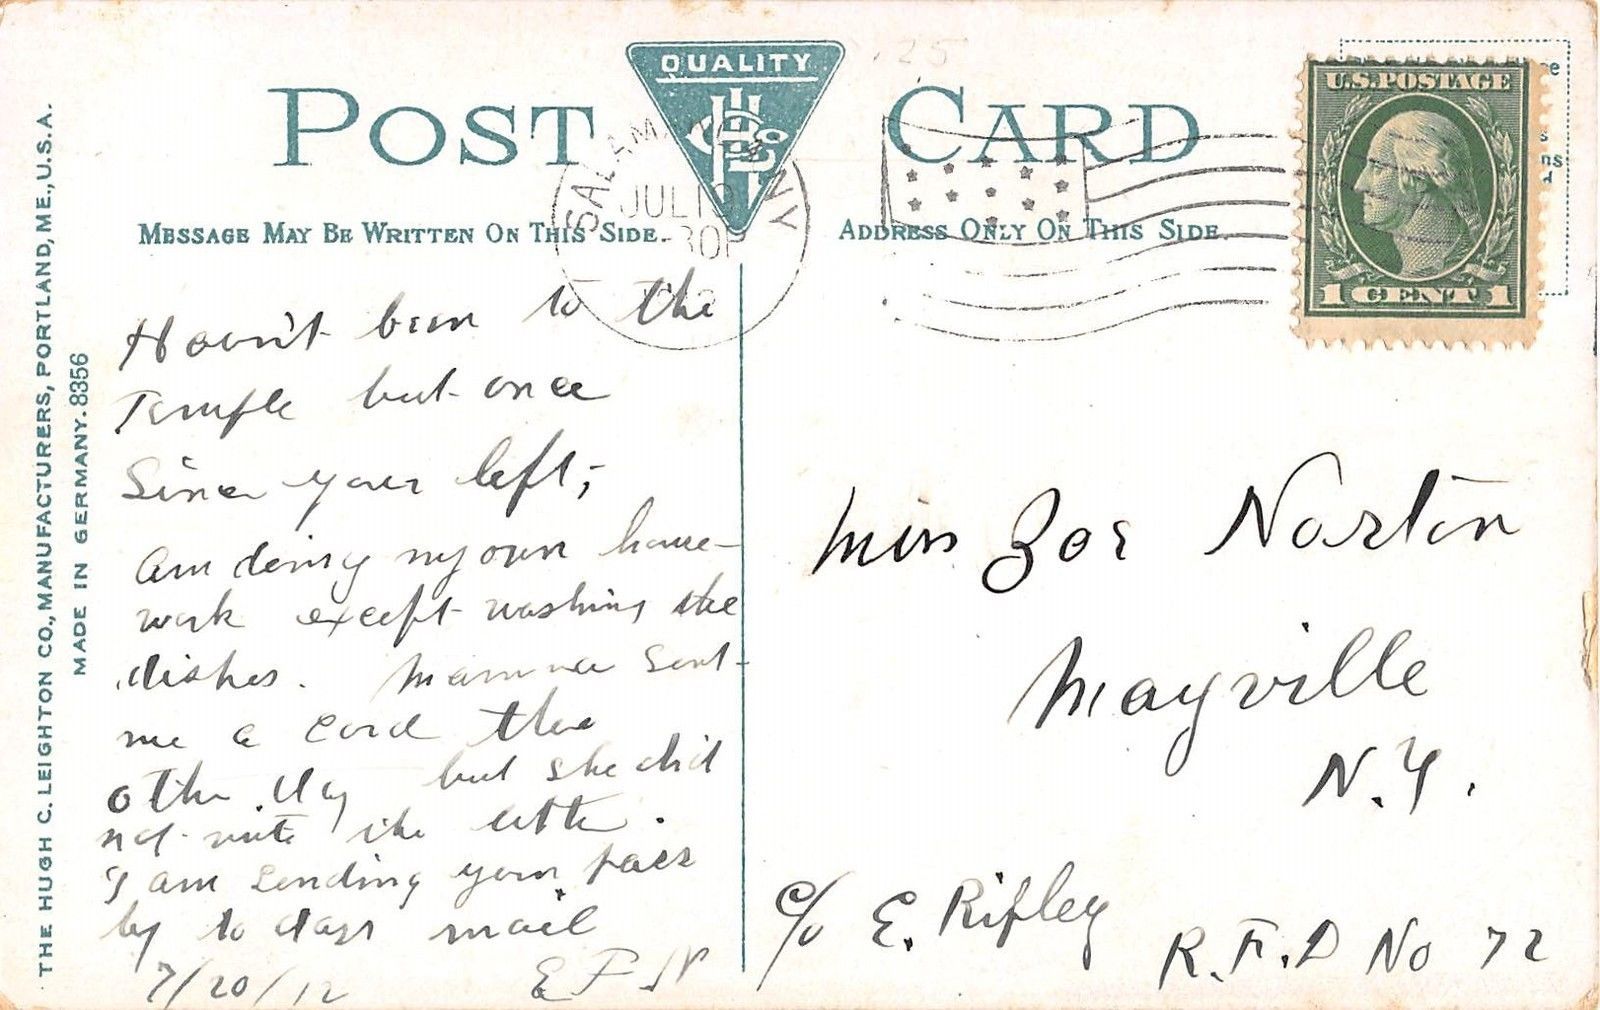 POST CARD
QUALITY
SALAMANCA NY
JUL 19
-30P
U.S. POSTAGE
1 CENT 1
MESSAGE MAY BE WRITTEN ON THIS SIDE.
ADDRESS ONLY ON THIS SIDE.
THE HUGH C. LEIGHTON CO., MANUFACTURERS, PORTLAND, ME., U.S.A.
MADE IN GERMANY. 8356
Haven't been to the
Temple but once
Since you left;
Am doing my own house-
work except washing the
dishes. Mamma sent
me a card the
other day but she did
not write the letter.
I am sending your pass
by to days mail
7/20/12 E F N
Miss Zoe Norton
Mayville
N.Y.
c/o E. Ripley
R.F.D No 72